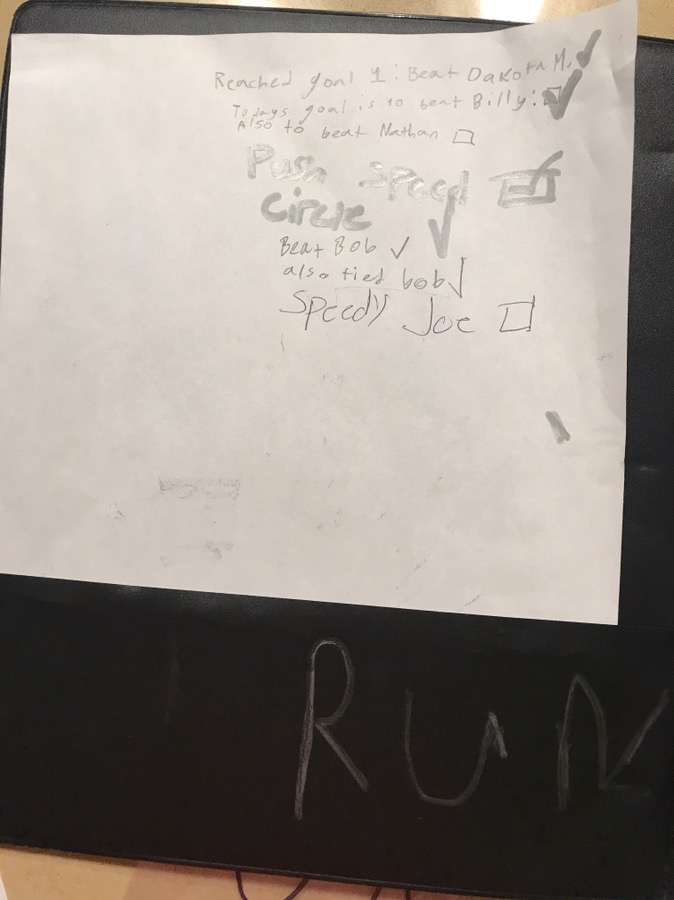 Reached goal 1: Beat Dakota M. ✓
Todays goal is to beat Billy: ☑
Also to beat Nathan ☐
Push Speed ☑
Circle ✓
Beat Bob ✓
also tied bob ✓
Speedy Joe ☐
RUN